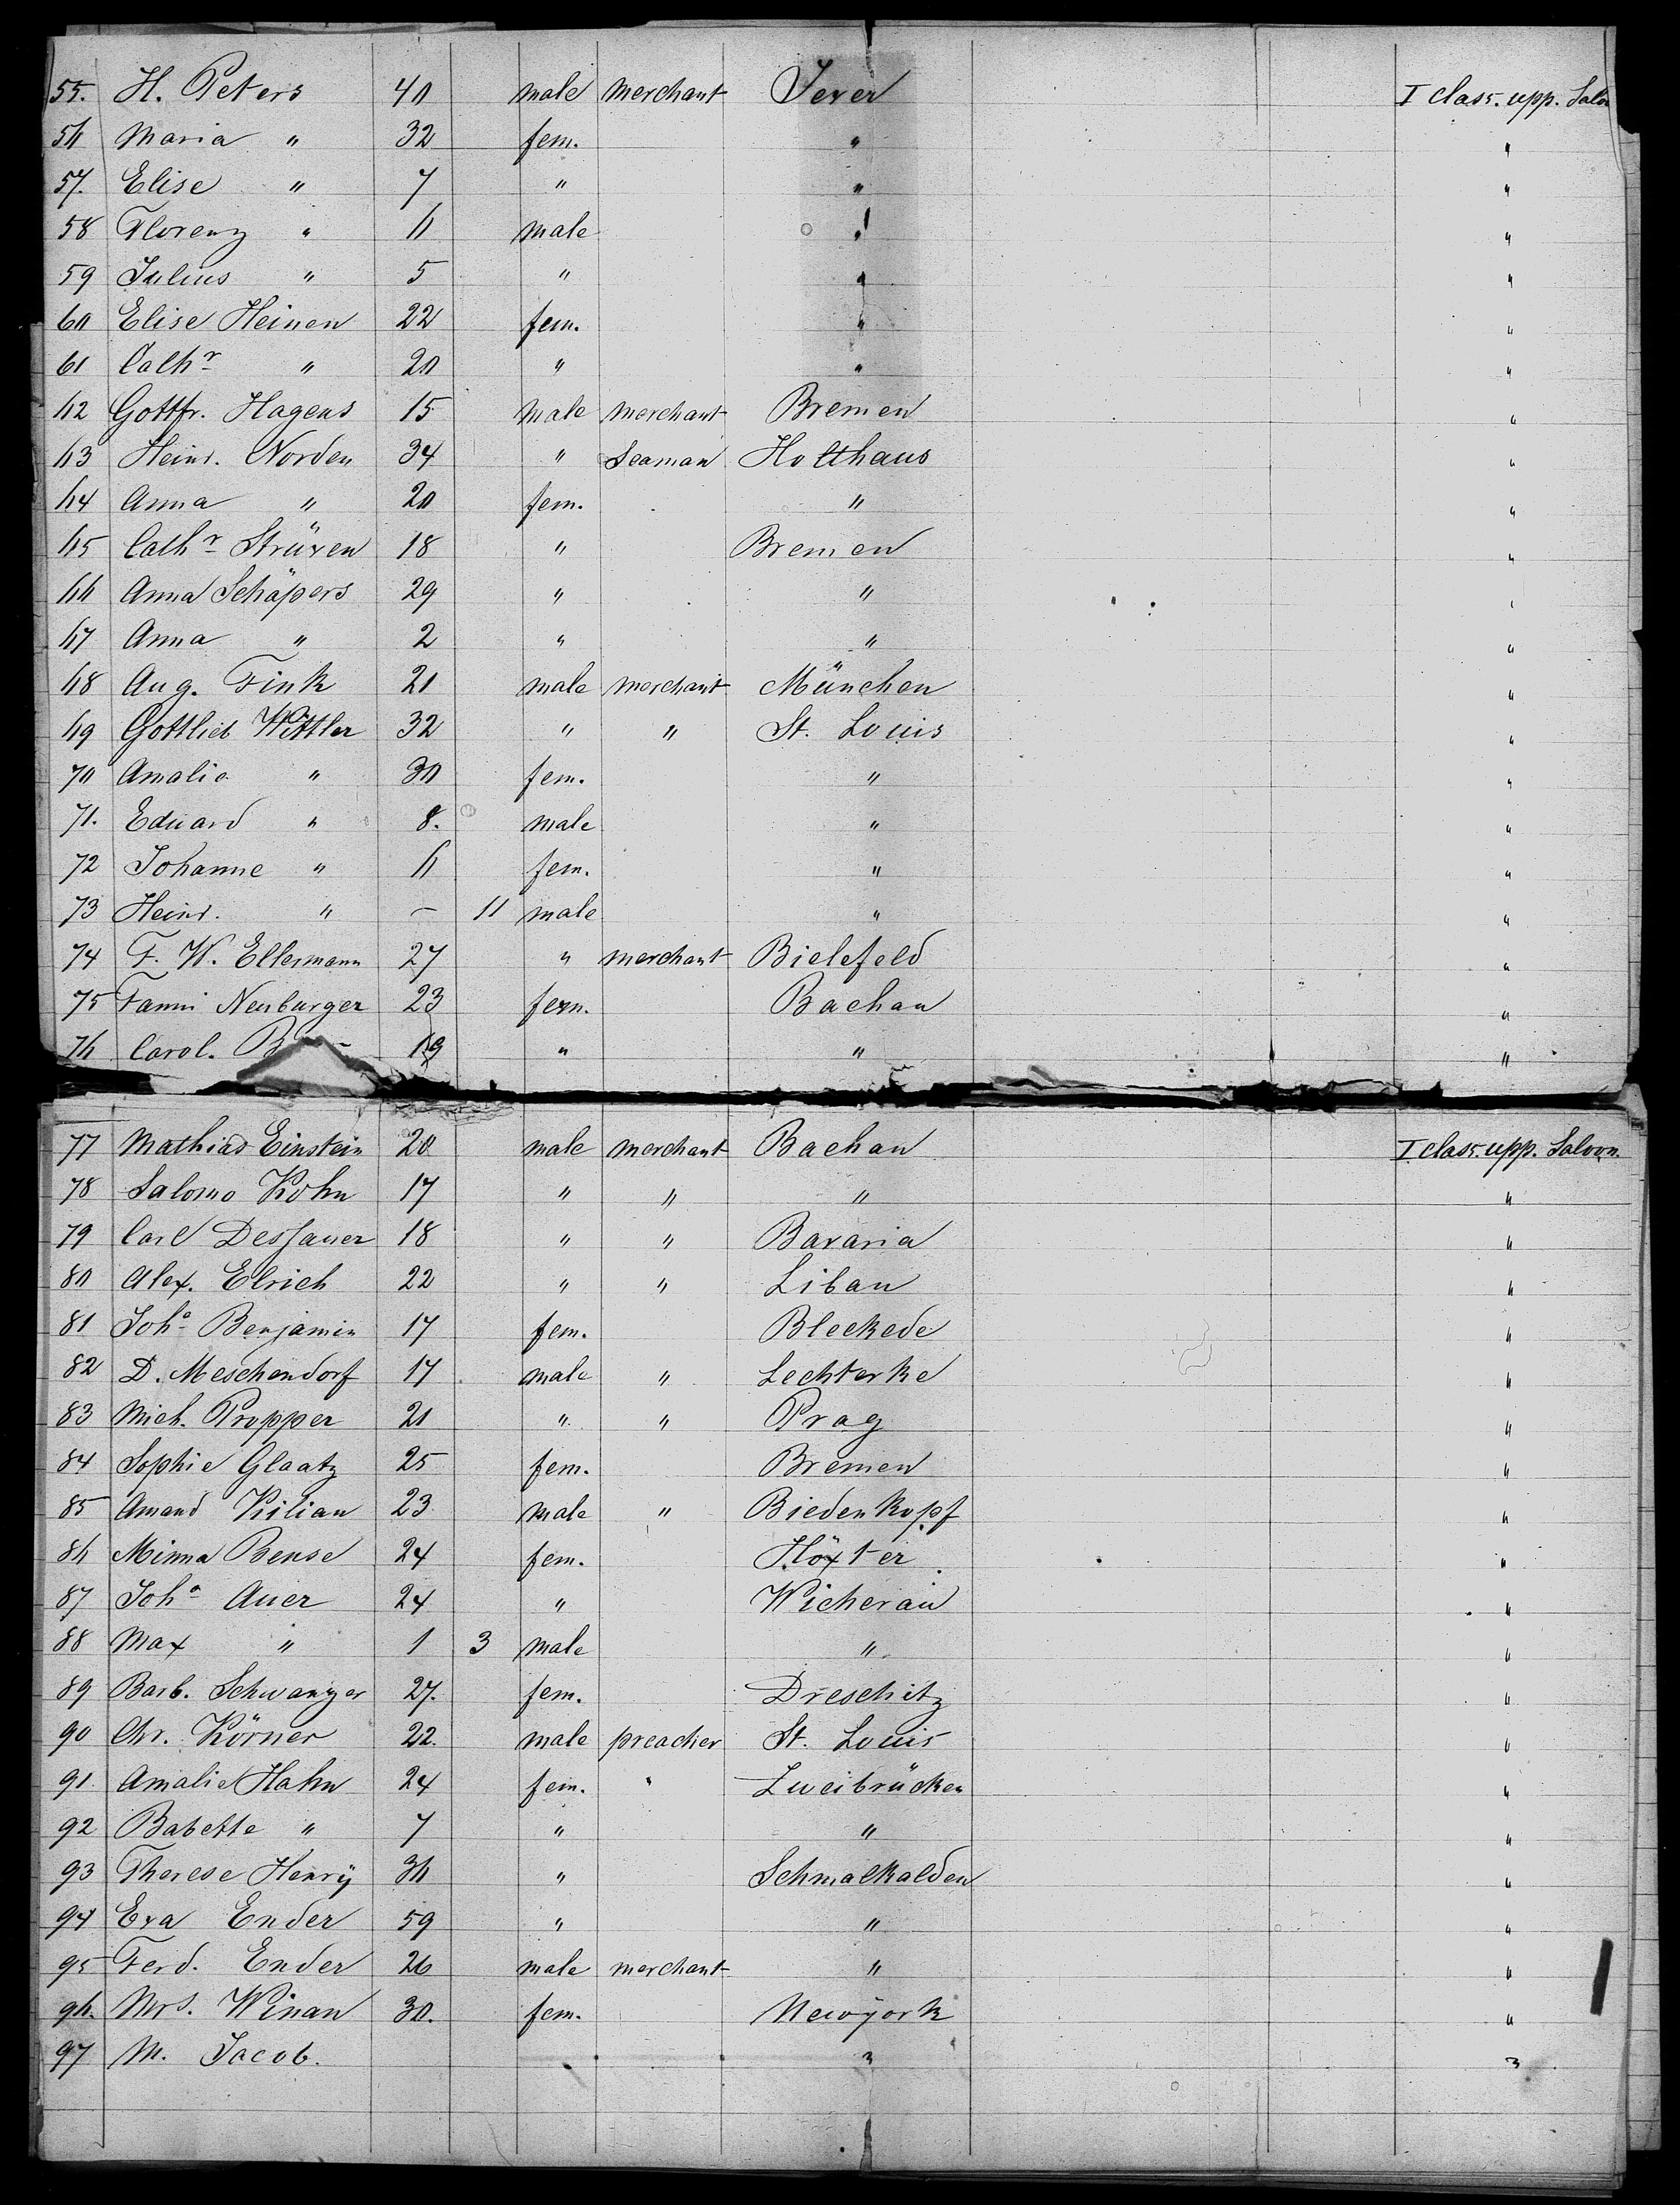 55. H. Peters 40 male merchant Jever I class. upp. Saloo
56 Maria " 32 fem. " "
57. Elise " 7 " " "
58 Florenz " 6 male " "
59 Julius " 5 " " "
60 Elise Heinen 22 fem. " "
61 Cathr " 20 " " "
62 Gottfr. Hagens 15 male merchant Bremen "
63 Heinr. Norden 34 " Seaman Holthaus "
64 Anna " 20 fem. " "
65 Cathr Strüven 18 " Bremen "
66 Anna Schäpers 29 " " "
67 Anna " 2 " " "
68 Aug. Fink 21 male merchant München "
69 Gottlieb Wittler 32 " " St. Louis "
70 Amalie " 30 fem. " "
71. Eduard " 8. male " "
72 Johanne " 6 fem. " "
73 Heinr. " – 11 male " "
74 F. W. Ellermann 27 " merchant Bielefeld "
75 Fanni Neuburger 23 fem. Bachau "
76 Carol. 19 " " "
77 Mathias Einstein 20 male merchant Bachau I class. upp. Saloon.
78 Salomo Kohn 17 " " " "
79 Carl Dessauer 18 " " Bavaria "
80 Alex. Elrich 22 " " Libau "
81 Joha Benjamin 17 fem. Bleckede "
82 D. Meschendorf 17 male " Lechterke "
83 Mich. Propper 21 " " Prag "
84 Sophie Glaatz 25 fem. Bremen "
85 Amand Kilian 23 male " Biedenkopf "
86 Minna Bense 24 fem. Höxter "
87 Joha Auer 24 " Wicherau "
88 Max " 1 3 male " "
89 Barb. Schwanzer 27. fem. Dreschitz "
90 Chr. Körner 22. male preacher St. Louis "
91 Amalie Hahn 24 fem. Zweibrücken "
92 Babette " 7 " " "
93 Therese Henrÿ 36 " Schmalkalden "
94 Eva Ender 59 " " "
95 Ferd. Ender 26 male merchant " "
96. Mrs. Winan 30. fem. Newÿork "
97 M. Jacob. " "